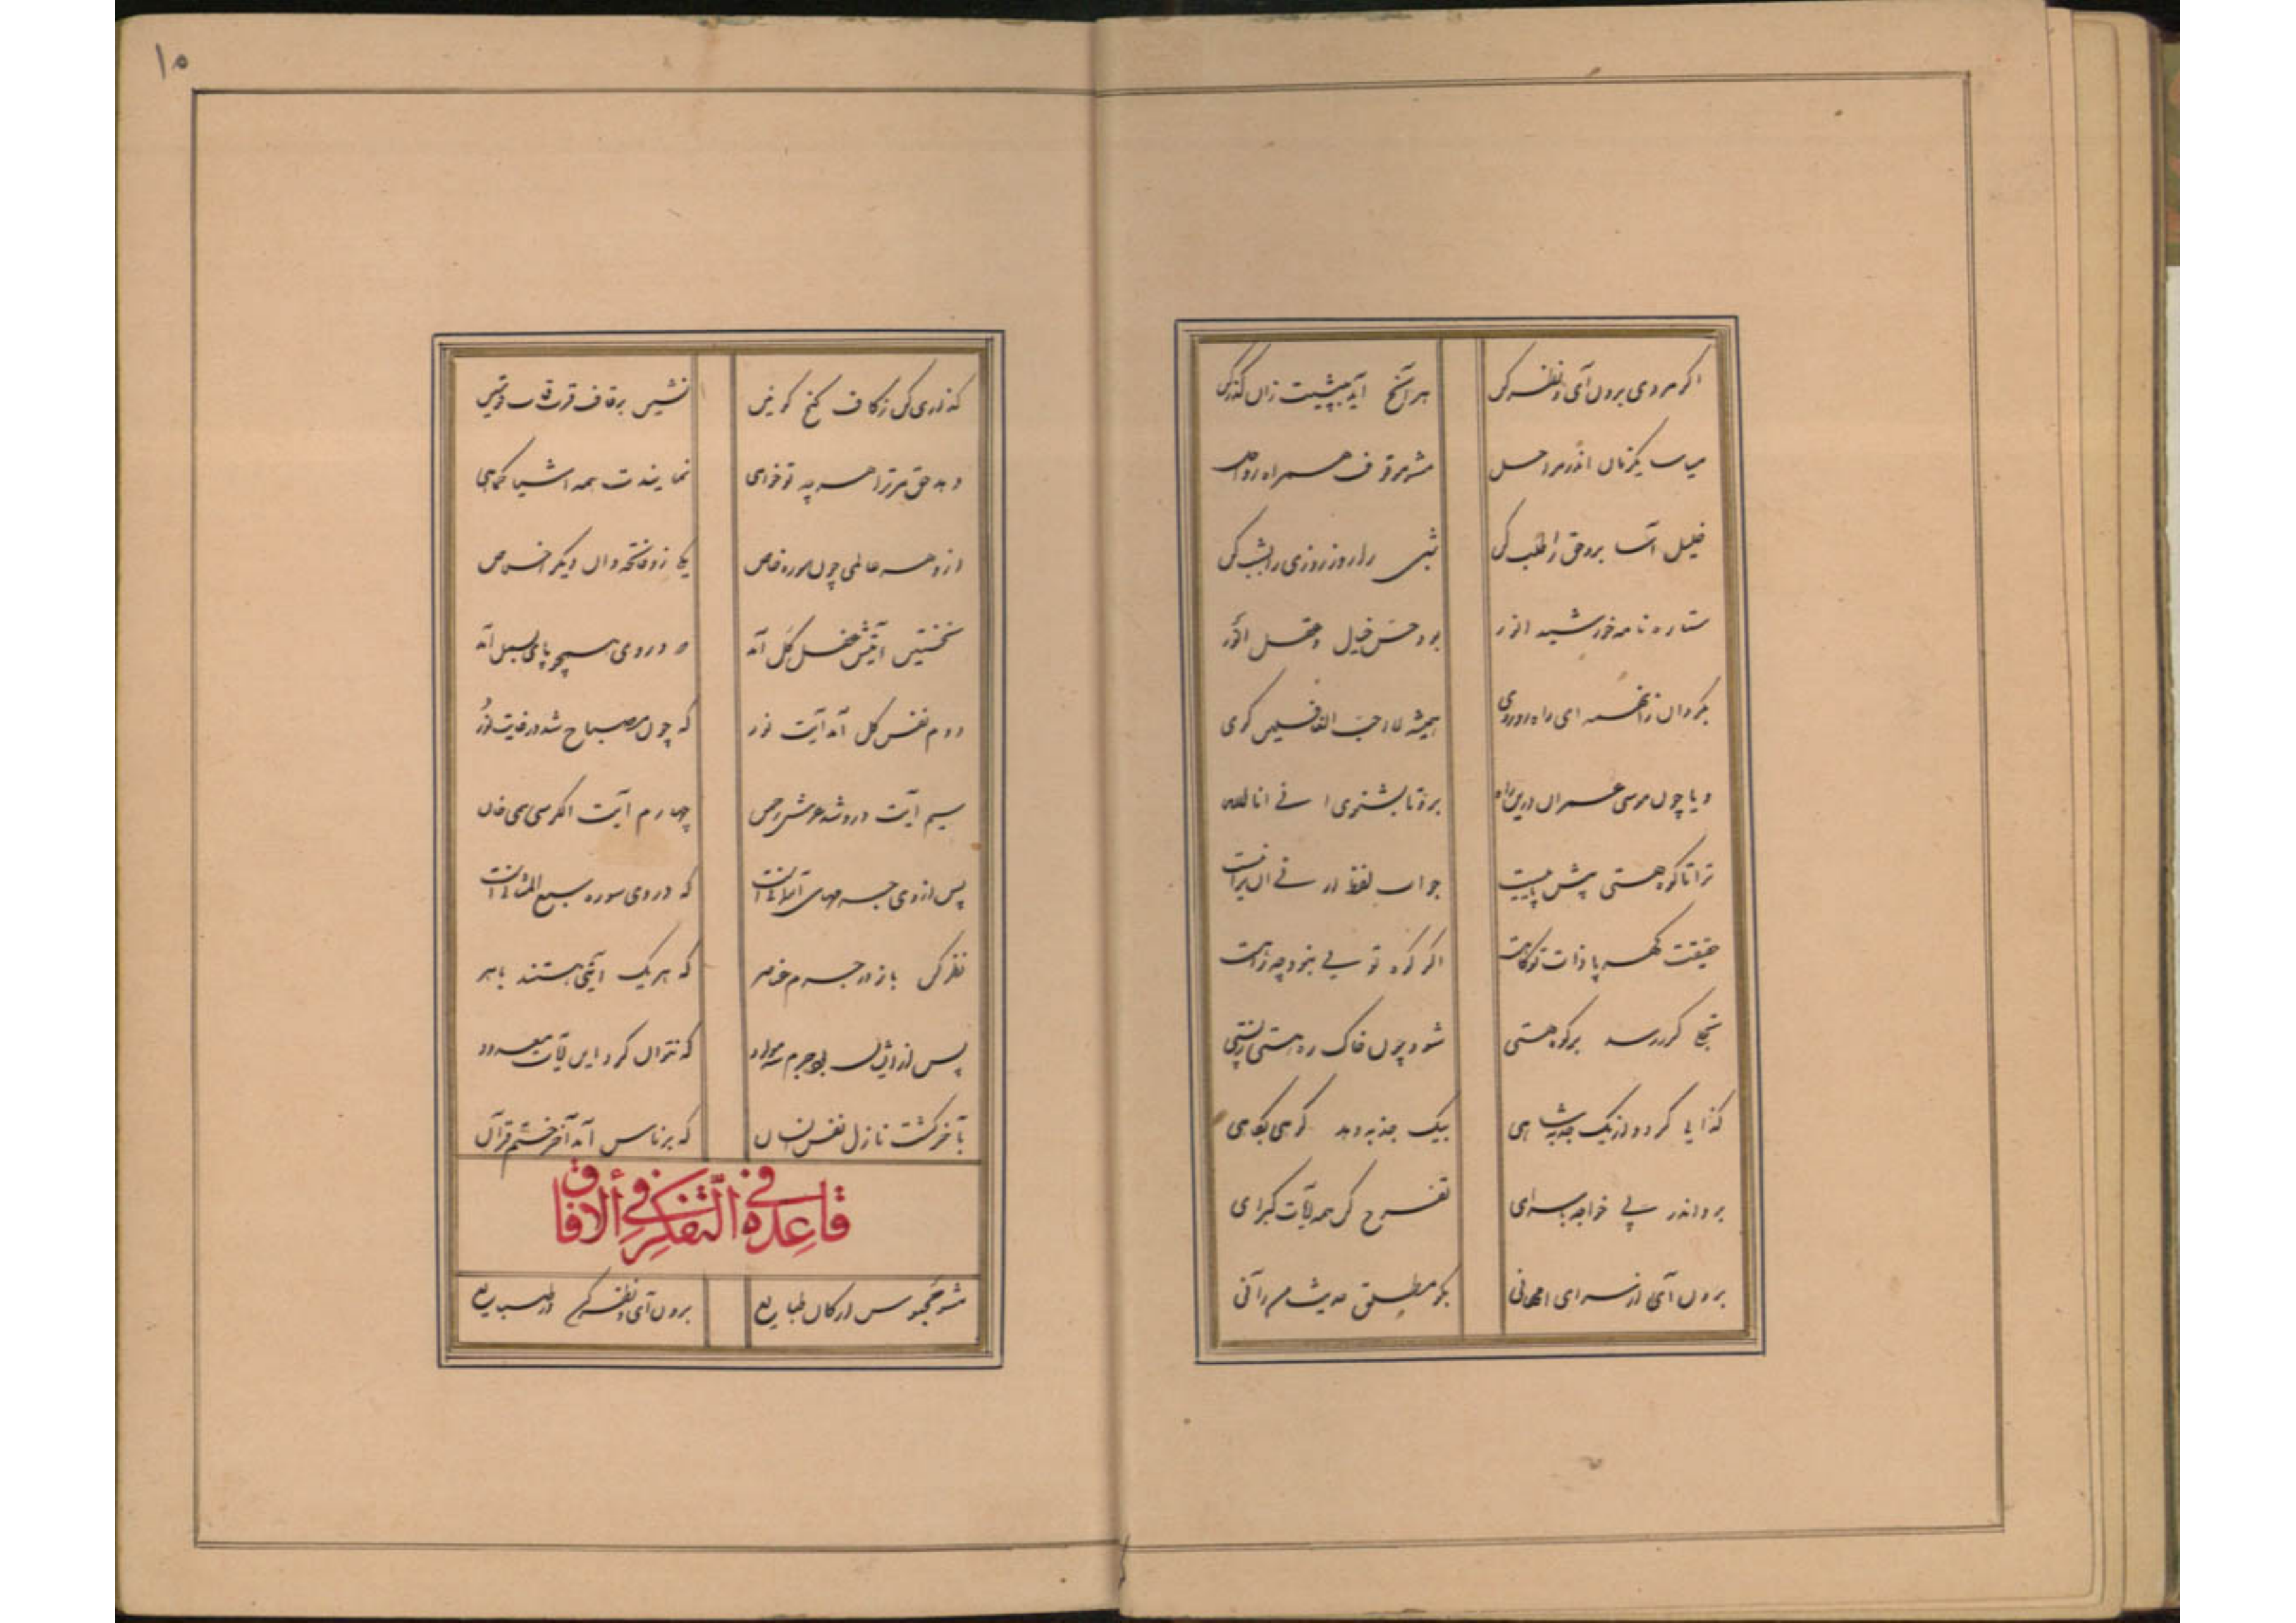 ۱۰
اگر مردی برون آی و نظر کن هر آنچ آید بپیشت زان گذر کن
میاسا یکزمان اندر مراحل مشو موقوف همراه رواحل
خلیل آسا برو حق را طلب کن شبی را روز و روزی را بشب کن
ستاره با مه و خورشید انور بود حس و خیال و عقل انور
بگردان زانهمه ای راهرو روی همیشه لا احب الافلین گوی
و یا چون موسی عمران درین راه برو تا بشنوی انی انا الله
ترا تا کوه هستی پیش باقیست جواب لفظ ارنی لن ترانیست
حقیقت کهربا ذات تو کاهست اگر کوه توئی نبود چه راهست
تجلی گر رسد بر کوه هستی شود چون خاک ره هستی ز پستی
گدایی گردد از یک جذبه شاهی بیک جذبه دهد کوهی بکاهی
برو اندر پی خواجه باسرای تفرج کن همه آیات کبرای
برون آی از سرای ام هانی بگو مطلق حدیث من رآنی
گذاری کن ز کاف کنج کونین نشین بر قاف قرب قاب قوسین
دهد حق مر ترا هر چه تو خواهی نمایندت همه اشیا کماهی
ازو هر عالمی چون سوره خاص یکی زو فاتحه وان دیگر اخلاص
نخستین آیتش عقل کل آمد که در وی همچو بای بسمل آمد
دوم نفس کل آمد آیت نور که چون مصباح شد در غایت نور
سیم آیت درو شد عرش رحمن چهارم آیت الکرسی همی خوان
پس از وی جرمهای آسمانیست که در وی سوره سبع المثانیست
نظر کن باز در جرم عناصر که هر یک آیتی هستند باهر
پس از ایشان بود جرم سه مولود که نتوان کرد این آیات معدود
بآخر گشت نازل نفس انسان که بر ناس آمد آخر ختم قرآن
قاعدة فی التفکر فی ألافاق
مشو محبوس ارکان طبایع برون آی و نظر کن در صبایع